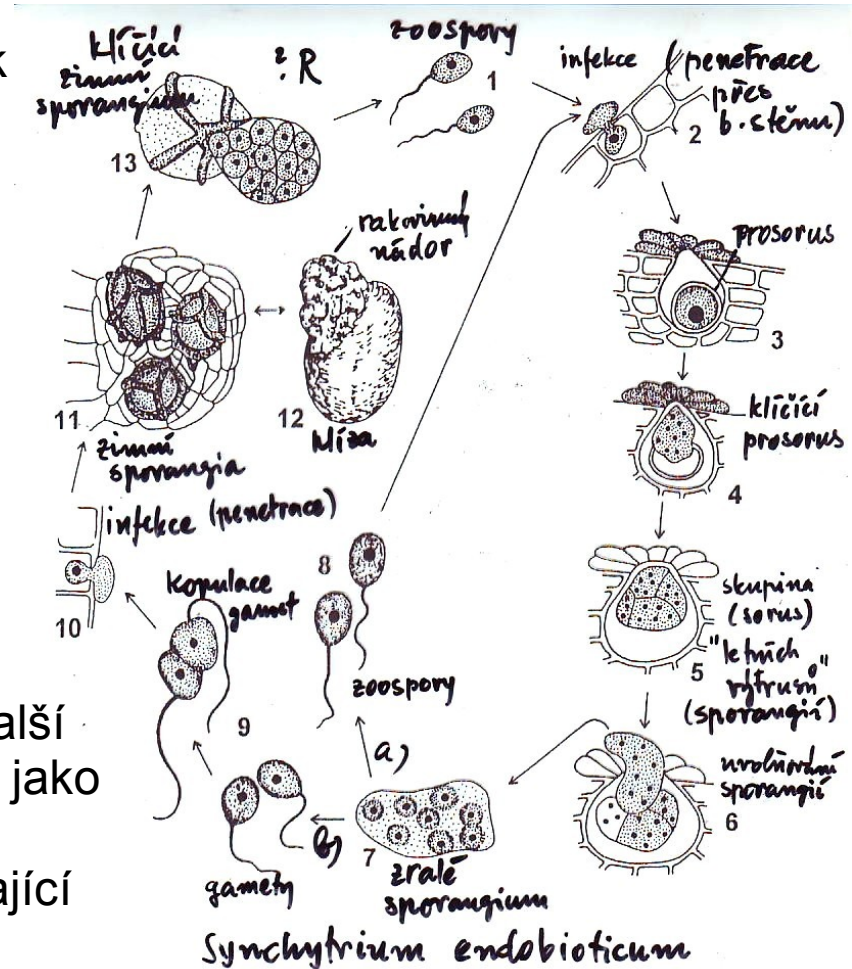 k
klíčící
zimní
sporangium
? R
zoospory
1
infekce (penetrace
přes
b. stěnu)
2
13
rakovinný
nádor
prosorus
3
11
12
hlíza
zimní
sporangia
klíčící
prosorus
4
infekce (penetrace)
10
kopulace
gamet
8
zoospory
skupina
(sorus)
"letních
výtrusů"
(sporangií)
5
9
alší
jako
ající
a)
b)
gamety
7
zralé
sporangium
uvolňování
sporangií
6
Synchytrium endobioticum